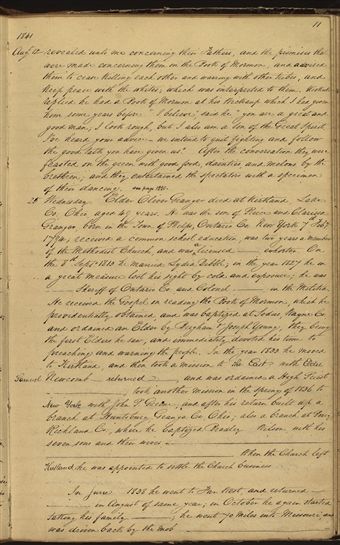 11
1841
Aug. 12 revealed unto me concerning their Fathers, and the promises that
were made concerning them in the Book of Mormon, and advised
them to cease killing each other and warring with other tribes, and
keep peace with the whites, which was interpreted to them. Keokuk
replied he had a Book of Mormon at his Wickaup which I had given
him some years before. "I believe," said he "you are a great and
good man, I look rough, but I also am a Son of the Great Spirit.
I've heard your advice— we intend to quit fighting and follow
the good talk you have given us." After the conversation they were
feasted on the green with good food, dainties and melons by the
brethren; and they entertained the spectators with a specimen
of their dancing.
25 Wednesday Elder Oliver Granger died at Kirtland, Lake
Co. Ohio aged 47 years. He was the son of Pierce and Clarissa
Granger, born in the Town of Phelps, Ontario Co. New York 7 Feby
1794; received a common school education, was two years a member
of the Methodist Church, and was licensed exhorter. On
the 8th Sept. 1813 he married Lydia Dibble; in the year 1827 he in
a great measure lost his sight by cold and exposure; he was
Sheriff of Ontario Co and Colonel in the Militia
He received the Gospel on reading the Book of Mormon, which he
providentially obtained, and was baptized at Sodus, Wayne Co.
and ordained an Elder by Brigham & Joseph Young, they being
the first Elders he saw, and immediately devoted his time to
preaching and warning the people. In the year 1833 he moved
to Kirtland, and then took a mission to the East with Elder
Samuel Newcomb returned and was ordained a High Priest
took another mission in the spring of 1836 to
New York with John P. Greene, and after his return built up a
branch at Huntsburg Geauga Co Ohio; also a branch at Perry
Richland Co; where he baptized Nealy Wilson with his
seven sons and their wives
When the Church left
Kirtland he was appointed to settle the Church business
In June 1838 he went to Far West and returned
in August of same year; in October he again started
taking his family; he went 70 miles into Missouri, and
was driven back by the mob